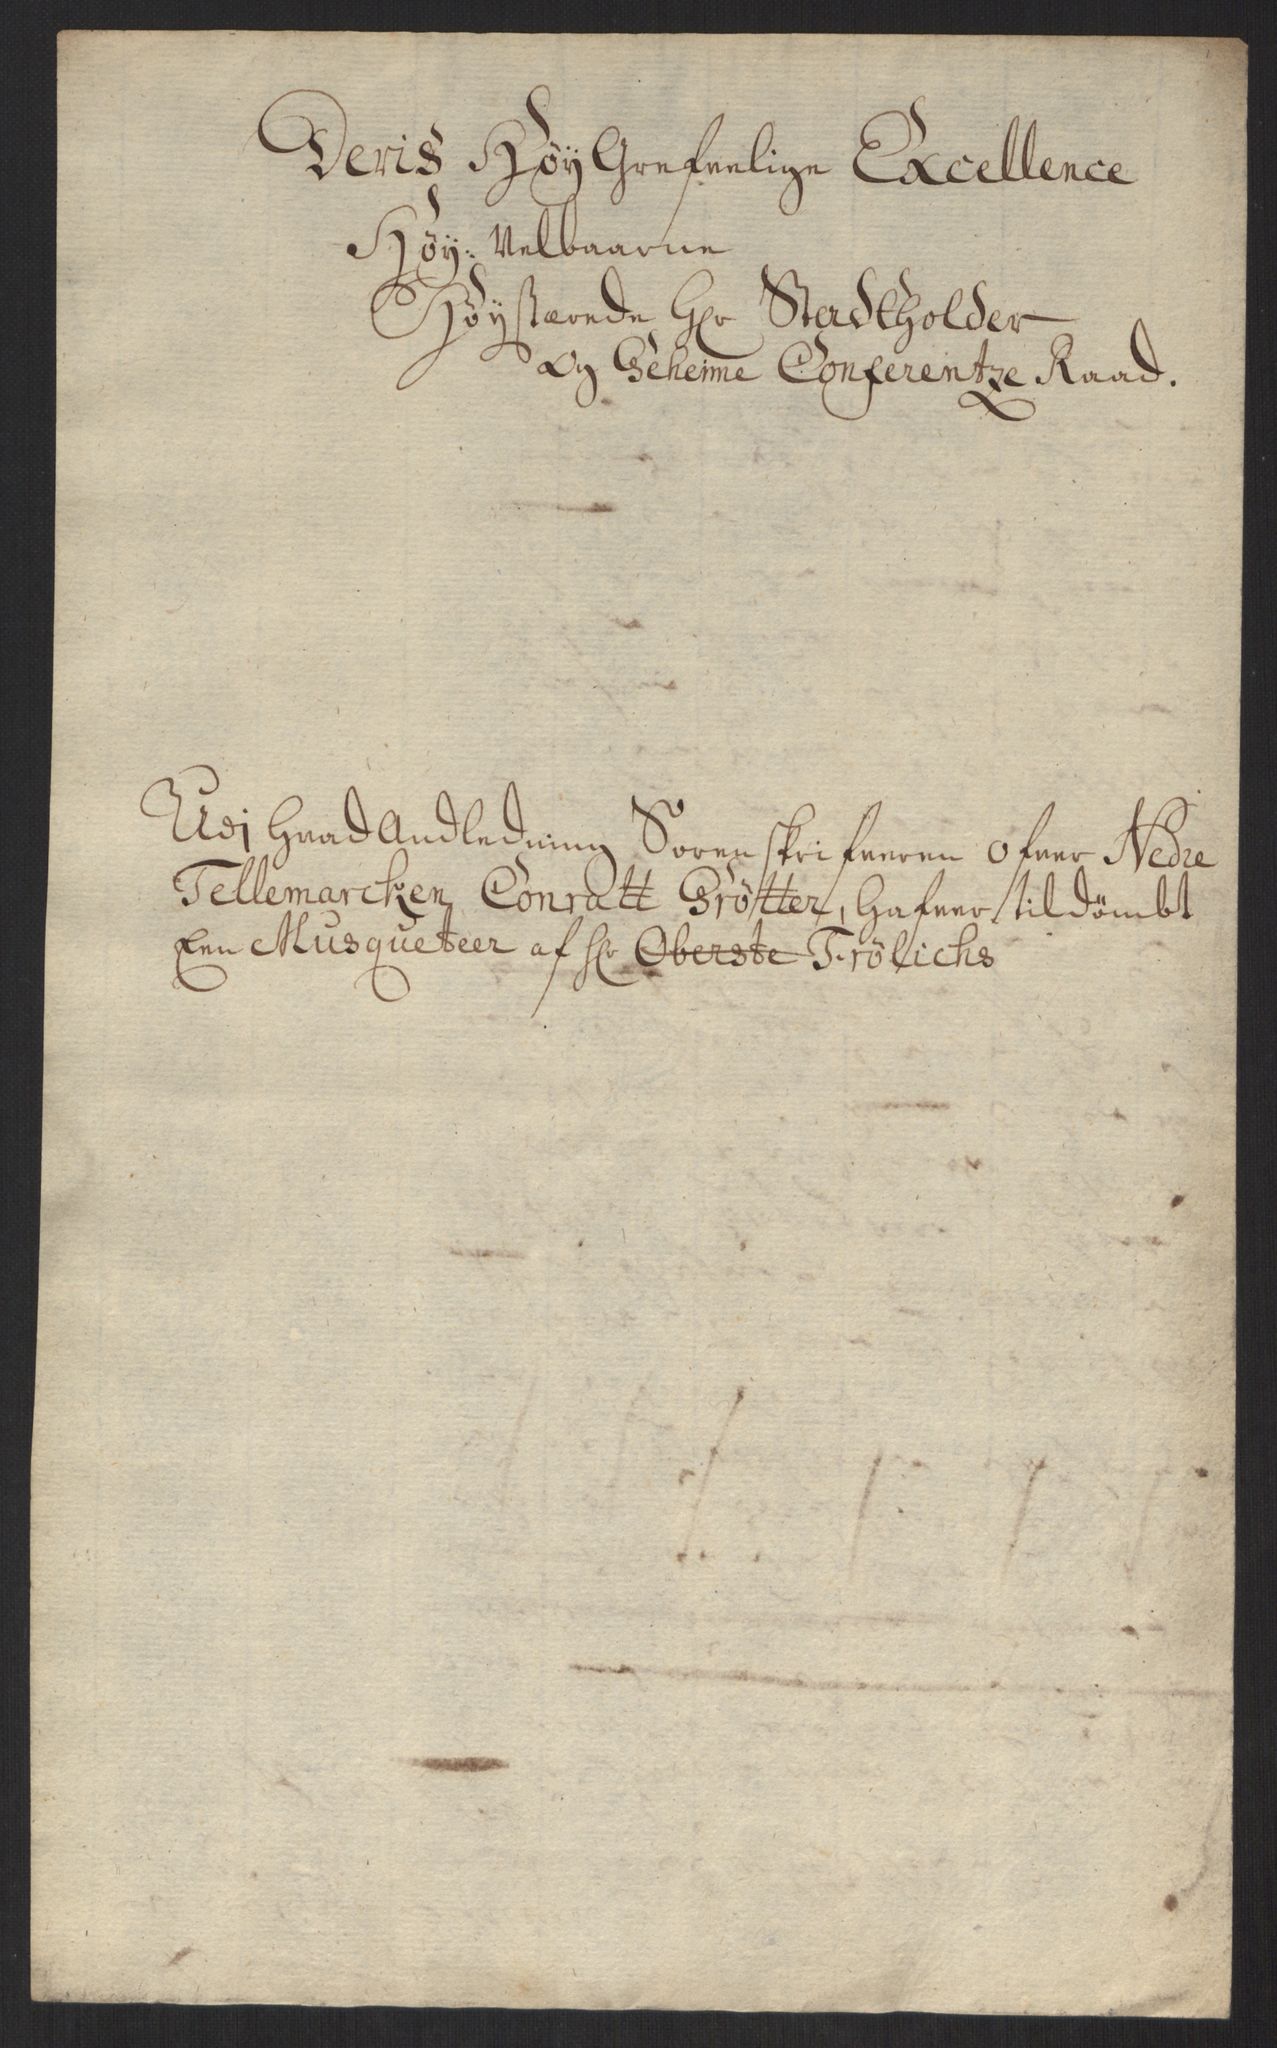 Deris Høy Grefvelige Excellence
Høy: Velbaarne
Høystærede Hr Stadtholder
og Geheime Conferentze Raad.
Udj hvad Andledning Sorenskrifveren ofver Nedre
Tellemarcken, Conratt Grötter, hafver tildömbt
Een Musqueteer af Hr Oberste Frölichs